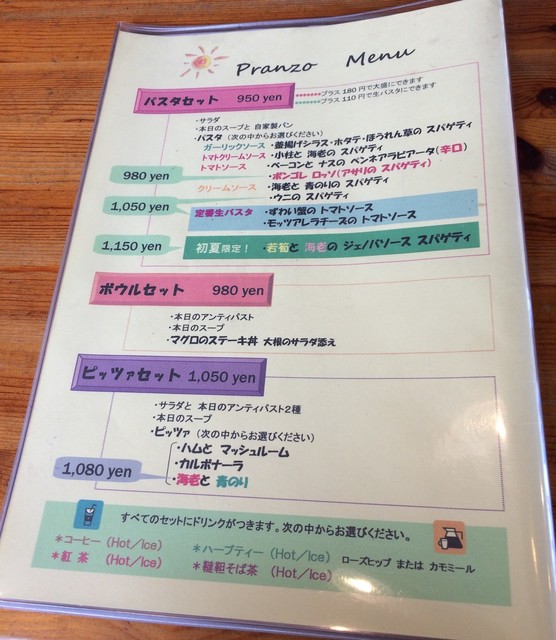 Pranzo Menu
パスタセット 950 yen
プラス 180 円で大盛にできます
プラス 110 円で生パスタにできます
・サラダ
・本日のスープと 自家製パン
・パスタ (次の中からお選びください)
ガーリックソース ・釜揚げシラス・ホタテ・ほうれん草の スパゲティ
トマトクリームソース ・小柱と 海老の スパゲティ
トマトソース ・ベーコンと ナスの ペンネアラビアータ(辛口)
980 yen ・ボンゴレ ロッソ(アサリの スパゲティ)
クリームソース ・海老と 青のりの スパゲティ
・ウニの スパゲティ
1,050 yen 定番生パスタ ・ずわい蟹の トマトソース
・モッツアレラチーズの トマトソース
1,150 yen 初夏限定! ・若筍と 海老の ジェノバソース スパゲティ
ボウルセット 980 yen
・本日のアンティパスト
・本日のスープ
・マグロのステーキ丼 大根のサラダ添え
ピッツァセット 1,050 yen
・サラダと 本日のアンティパスト2種
・本日のスープ
・ピッツァ (次の中からお選びください)
・ハムと マッシュルーム
・カルボナーラ
1,080 yen ・海老と 青のり
すべてのセットにドリンクがつきます。次の中からお選びください。
*コーヒー (Hot/Ice) *ハーブティー (Hot/Ice) ローズヒップ または カモミール
*紅 茶 (Hot/Ice) *韃靼そば茶 (Hot/Ice)